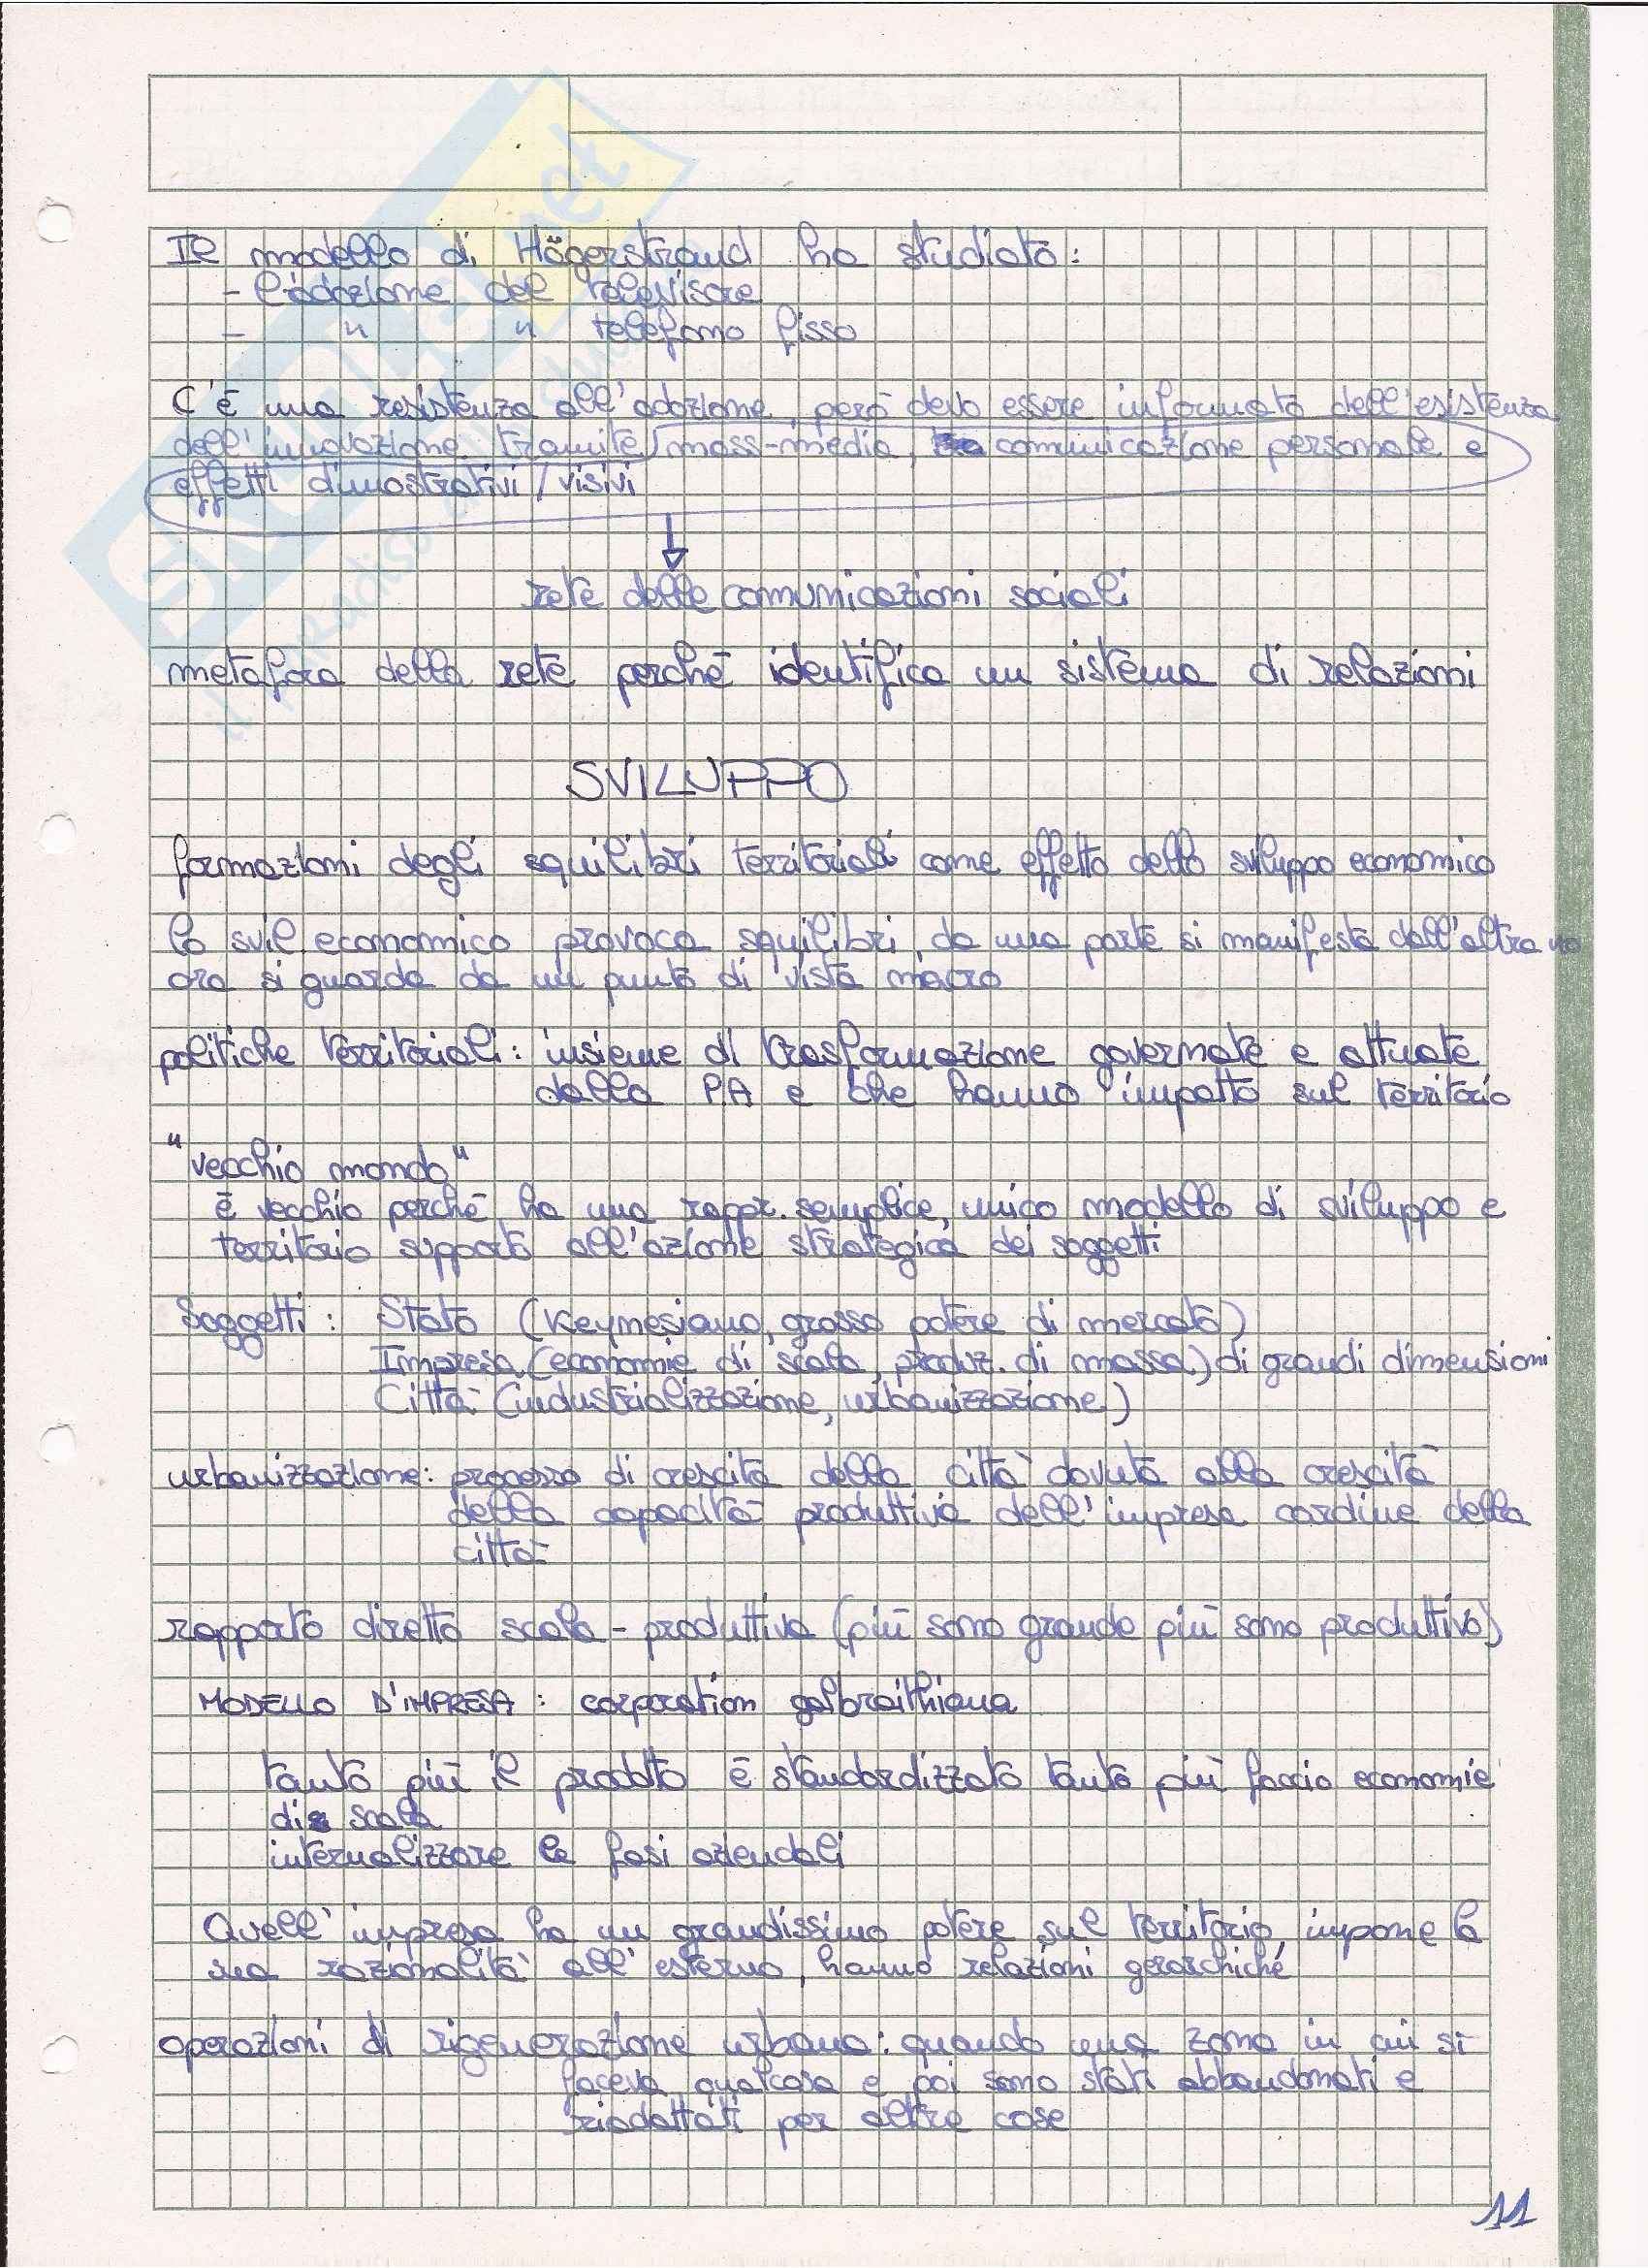 Il modello di Hägerstrand ha studiato:
- l'adozione del televisore
- " " telefono fisso
C'è una resistenza all'adozione, però devo essere informato dell'esistenza
dell'innovazione tramite mass-media, comunicazione personale e
effetti dimostrativi/visivi
rete delle comunicazioni sociali
metafora della rete perchè identifica un sistema di relazioni
SVILUPPO
formazioni degli squilibri territoriali come effetto dello sviluppo economico
lo svil. economico provoca squilibri, da una parte si manifesta dall'altra no
ora si guarda da un punto di vista macro
politiche territoriali: insieme di trasformazione governate e attuate
dalla PA e che hanno impatto sul territorio
"vecchio mondo"
è vecchio perchè ha una rappr. semplice, unico modello di sviluppo e
territorio supporto all'azione strategica dei soggetti
Soggetti: Stato (Keynesiano, grosso potere di mercato)
Impresa (economie di scala, produz. di massa) di grandi dimensioni
Città (industrializzazione, urbanizzazione)
urbanizzazione: processo di crescita della città dovuta alla crescita
della capacità produttiva dell'impresa cardine della
città
rapporto diretto scala-produttiva (più sono grande più sono produttivo)
MODELLO D'IMPRESA: corporation galbraithiana
tanto più il prodotto è standardizzato tanto più faccio economie
di scala
internalizzare le fasi aziendali
Quell'impresa ha un grandissimo potere sul territorio, impone la
sua razionalità all'esterno, hanno relazioni gerarchiche
operazioni di rigenerazione urbana: quando una zona in cui si
faceva qualcosa e poi sono stati abbandonati e
riadattati per altre cose
11
skuola.net
il paradiso dello studente